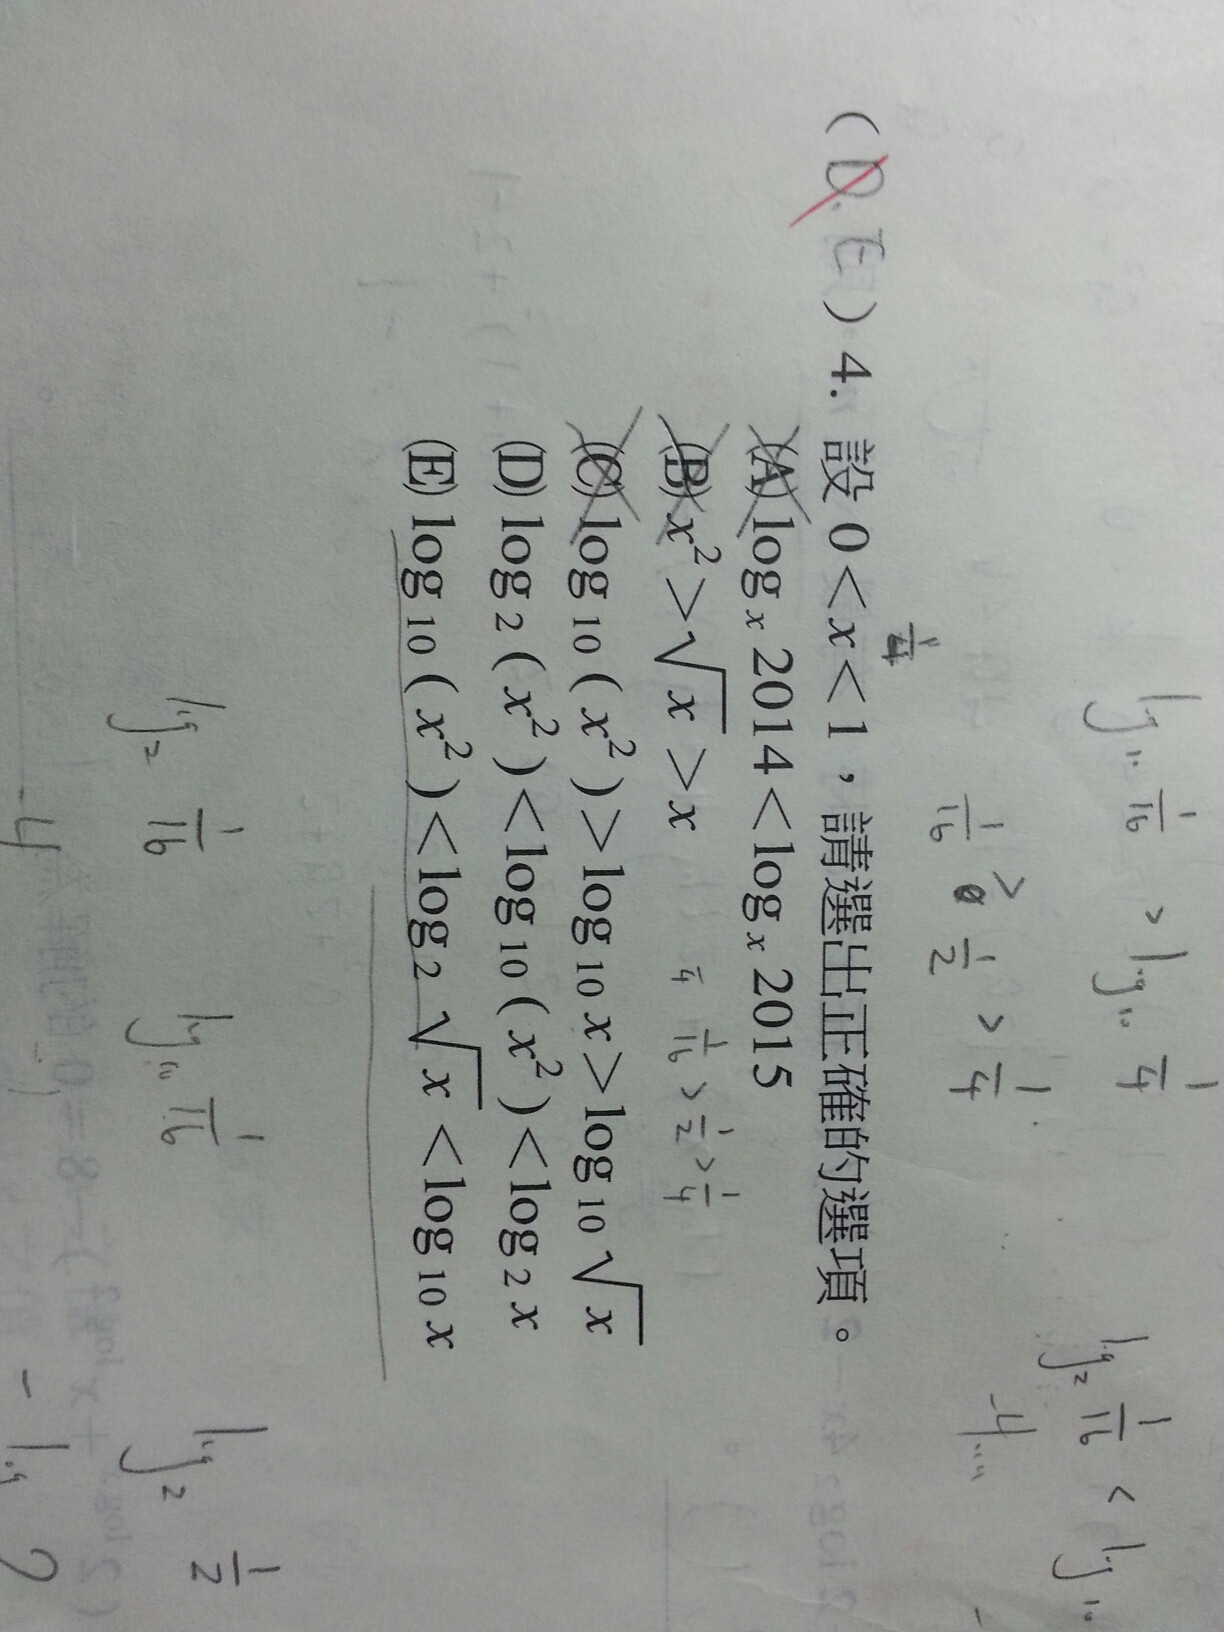 (D.E) 4. 設 0<x<1，請選出正確的選項。
1/4
(A) log_x 2014 < log_x 2015
(B) x² > √x > x
1/16 > 1/2 > 1/4
(C) log₁₀(x²) > log₁₀ x > log₁₀ √x
(D) log₂(x²) < log₁₀(x²) < log₂ x
(E) log₁₀(x²) < log₂ √x < log₁₀ x
log₁₀ 1/16 > log₁₀ 1/4
1/16 > 1/2 > 1/4
log₂ 1/16 < log₁₀
-4
log₂ 1/16
log₁₀ 1/16
log₂ 1/2
-4
- log 2